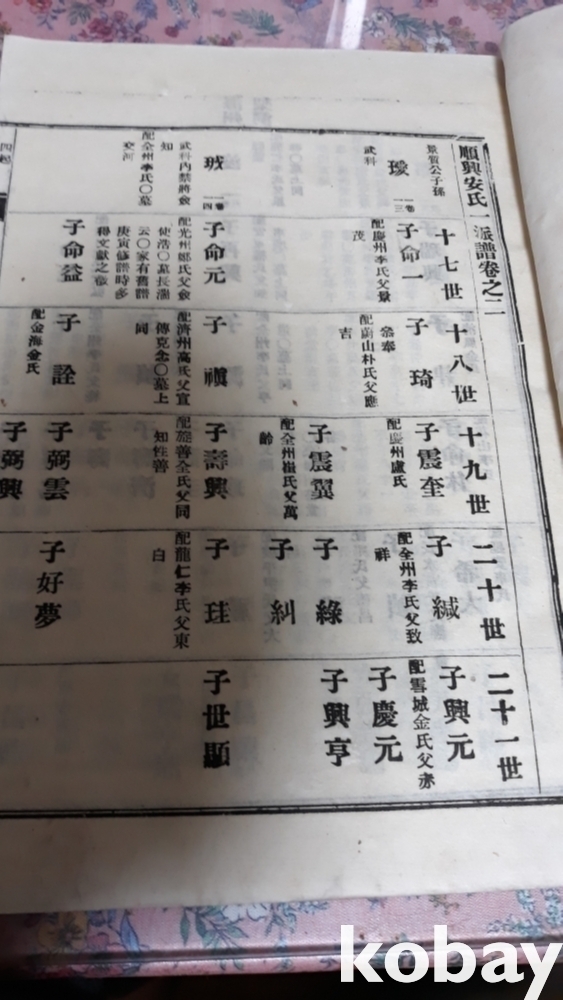 順興安氏一派譜卷之二
景質公子孫
璦
一卷
一三
武科
珬
一卷
一四
武科內禁將僉
知
配全州李氏〇墓
交河
十七世
子命一
配慶州李氏父景
茂
子命元
配光州鄭氏父僉
使浩〇墓長湍
云〇家有舊譜
庚寅修譜時多
得文獻之徵
子命益
十八世
子琦
參奉
配蔚山朴氏父應
吉
子禛
配濟州高氏父宣
傳克念〇墓上
同
子詮
配金海金氏
十九世
子震奎
配慶州盧氏
子震翼
配全州崔氏父萬
齡
子壽興
配旌善全氏父同
知性善
子弼雲
子弼興
二十世
子緘
配全州李氏父致
祥
子綠
子糾
子珪
配龍仁李氏父東
白
子好夢
二十一世
子興元
配雪城金氏父赤
子慶元
子興亨
子世顯
四起
kobay